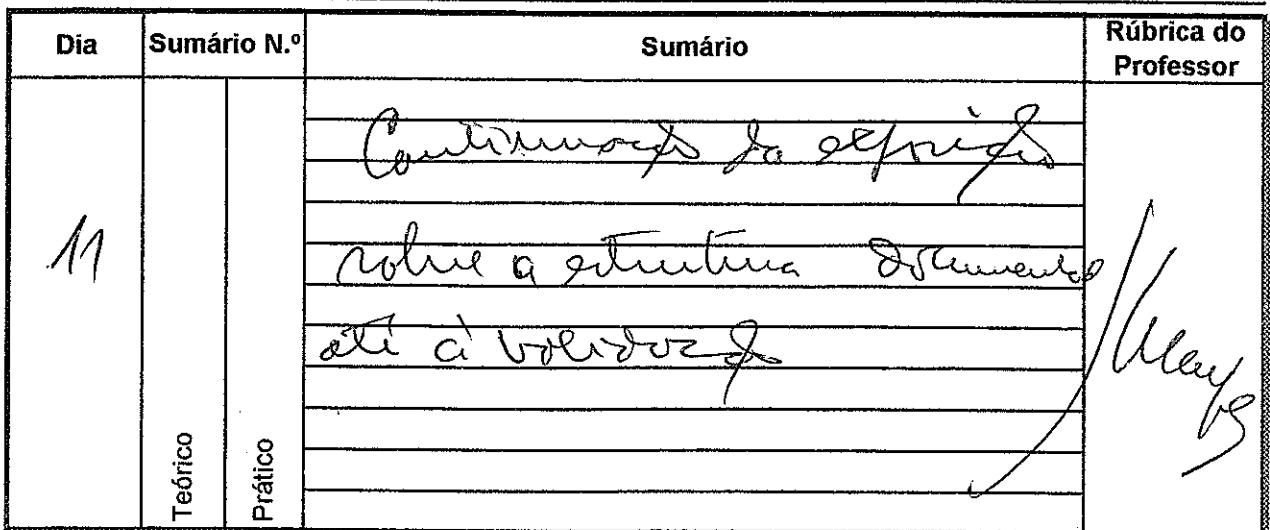 Dia
Sumário N.º
Sumário
Rúbrica do
Professor
11
Teórico
Prático
Continuação da exposição
sobre a estrutura documental
até à validação